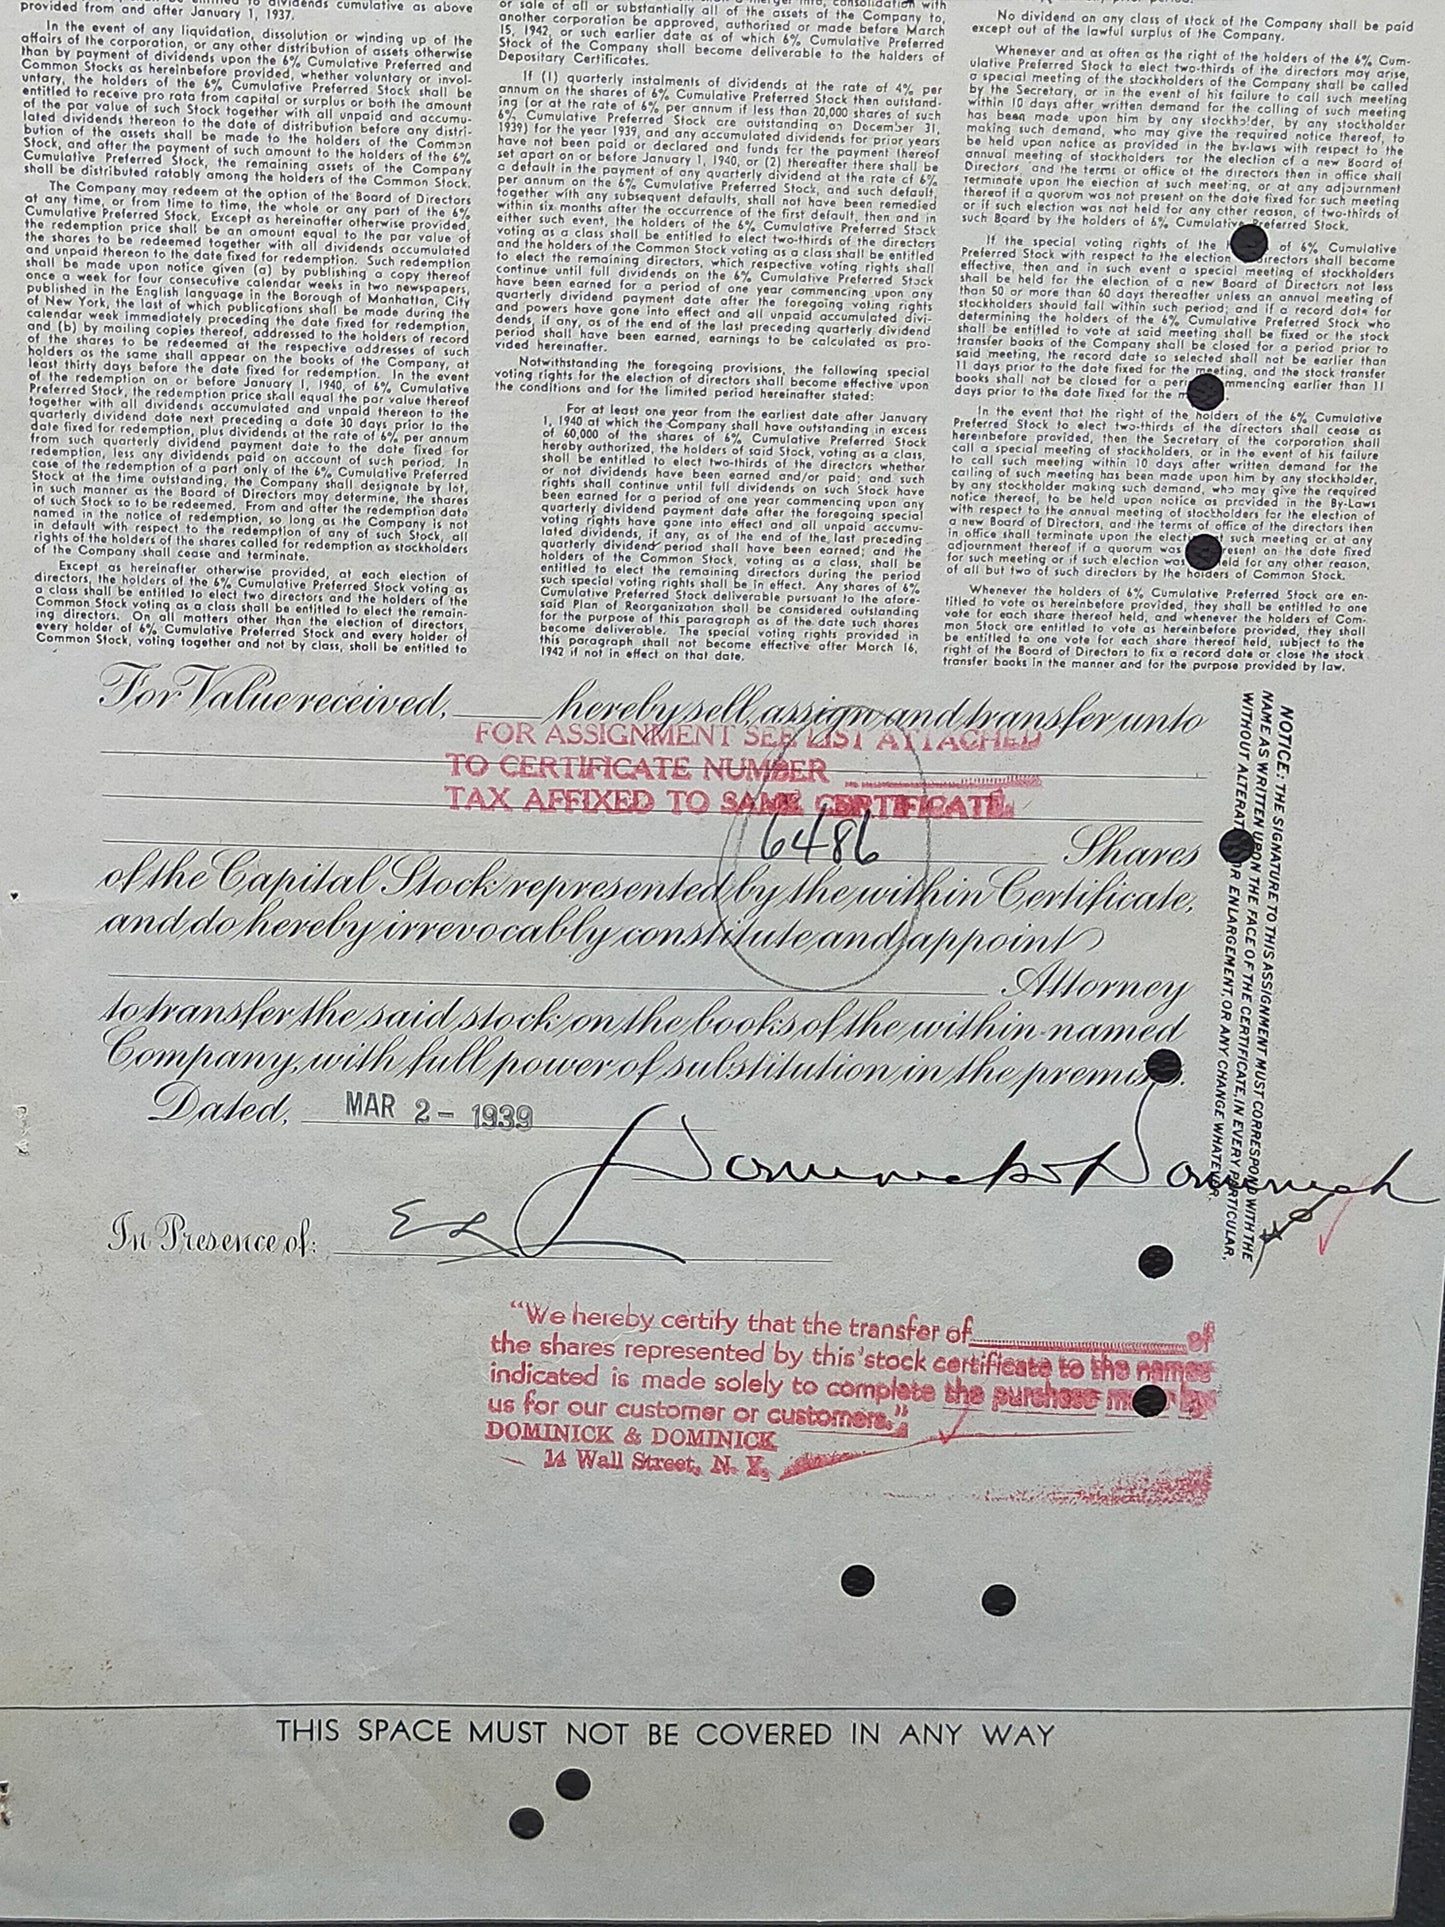 provided from and after January 1, 1937.
In the event of any liquidation, dissolution or winding up of the
affairs of the corporation, or any other distribution of assets otherwise
than by payment of dividends upon the 6% Cumulative Preferred and
Common Stocks as hereinbefore provided, whether voluntary or invol-
untary, the holders of the 6% Cumulative Preferred Stock shall be
entitled to receive pro rata from capital or surplus or both the amount
of the par value of such Stock together with all unpaid and accumu-
lated dividends thereon to the date of distribution before any distri-
bution of the assets shall be made to the holders of the Common
Stock, and after the payment of such amount to the holders of the 6%
Cumulative Preferred Stock, the remaining assets of the Company
shall be distributed ratably among the holders of the Common Stock.
The Company may redeem at the option of the Board of Directors
at any time, or from time to time, the whole or any part of the 6%
Cumulative Preferred Stock. Except as hereinafter otherwise provided,
the redemption price shall be an amount equal to the par value of
the shares to be redeemed together with all dividends accumulated
and unpaid thereon to the date fixed for redemption. Such redemption
shall be made upon notice given (a) by publishing a copy thereof
once a week for four consecutive calendar weeks in two newspapers,
published in the English language in the Borough of Manhattan, City
of New York, the last of which publications shall be made during the
calendar week immediately preceding the date fixed for redemption,
and (b) by mailing copies thereof, addressed to the holders of record
of the shares to be redeemed at the respective addresses of such
holders as the same shall appear on the books of the Company, at
least thirty days before the date fixed for redemption. In the event
of the redemption on or before January 1, 1940, of 6% Cumulative
Preferred Stock, the redemption price shall equal the par value thereof
together with all dividends accumulated and unpaid thereon to the
quarterly dividend date next preceding a date 30 days prior to the
date fixed for redemption, plus dividends at the rate of 6% per annum
from such quarterly dividend payment date to the date fixed for
redemption, less any dividends paid on account of such period. In
case of the redemption of a part only of the 6% Cumulative Preferred
Stock at the time outstanding, the Company shall designate by lot,
in such manner as the Board of Directors may determine, the shares
of such Stock so to be redeemed. From and after the redemption date
named in the notice of redemption, so long as the Company is not
in default with respect to the redemption of any of such Stock, all
rights of the holders of the shares called for redemption as stockholders
of the Company shall cease and terminate.
Except as hereinafter otherwise provided, at each election of
directors, the holders of the 6% Cumulative Preferred Stock voting as
a class shall be entitled to elect two directors and the holders of the
Common Stock voting as a class shall be entitled to elect the remain-
ing directors. On all matters other than the election of directors,
every holder of 6% Cumulative Preferred Stock and every holder of
Common Stock, voting together and not by class, shall be entitled to
or sale of all or substantially all of the assets of the Company to,
another corporation be approved, authorized or made before March
15, 1942, or such earlier date as of which 6% Cumulative Preferred
Stock of the Company shall become deliverable to the holders of
Depositary Certificates.
If (1) quarterly instalments of dividends at the rate of 4% per
annum on the shares of 6% Cumulative Preferred Stock then outstand-
ing (or at the rate of 6% per annum if less than 20,000 shares of such
6% Cumulative Preferred Stock are outstanding on December 31,
1939) for the year 1939, and any accumulated dividends for prior years
have not been paid or declared and funds for the payment thereof
set apart on or before January 1, 1940, or (2) thereafter there shall be
a default in the payment of any quarterly dividend at the rate of 6%
per annum on the 6% Cumulative Preferred Stock, and such default,
together with any subsequent defaults, shall not have been remedied
within six months after the occurrence of the first default, then and in
either such event, the holders of the 6% Cumulative Preferred Stock
voting as a class shall be entitled to elect two-thirds of the directors
and the holders of the Common Stock voting as a class shall be entitled
to elect the remaining directors, which respective voting rights shall
continue until full dividends on the 6% Cumulative Preferred Stock
have been earned for a period of one year commencing upon any
quarterly dividend payment date after the foregoing voting rights
and powers have gone into effect and all unpaid accumulated divi-
dends, if any, as of the end of the last preceding quarterly dividend
period shall have been earned, earnings to be calculated as pro-
vided hereinafter.
Notwithstanding the foregoing provisions, the following special
voting rights for the election of directors shall become effective upon
the conditions and for the limited period hereinafter stated:
For at least one year from the earliest date after January
1, 1940 at which the Company shall have outstanding in excess
of 60,000 of the shares of 6% Cumulative Preferred Stock
hereby authorized, the holders of said Stock, voting as a class,
shall be entitled to elect two-thirds of the directors whether
or not dividends have been earned and/or paid; and such
rights shall continue until full dividends on such Stock have
been earned for a period of one year commencing upon any
quarterly dividend payment date after the foregoing special
voting rights have gone into effect and all unpaid accumu-
lated dividends, if any, as of the end of the last preceding
quarterly dividend period shall have been earned; and the
holders of the Common Stock, voting as a class, shall be
entitled to elect the remaining directors during the period
such special voting rights shall be in effect. Any shares of 6%
Cumulative Preferred Stock deliverable pursuant to the afore-
said Plan of Reorganization shall be considered outstanding
for the purpose of this paragraph as of the date such shares
become deliverable. The special voting rights provided in
this paragraph shall not become effective after March 16,
1942 if not in effect on that date.
No dividend on any class of stock of the Company shall be paid
except out of the lawful surplus of the Company.
Whenever and as often as the right of the holders of the 6% Cum-
ulative Preferred Stock to elect two-thirds of the directors may arise,
a special meeting of the stockholders of the Company shall be called
by the Secretary, or in the event of his failure to call such meeting
within 10 days after written demand for the calling of such meeting
has been made upon him by any stockholder, by any stockholder
making such demand, who may give the required notice thereof, to
be held upon notice as provided in the by-laws with respect to the
annual meeting of stockholders for the election of a new Board of
Directors, and the terms of office of the directors then in office shall
terminate upon the election at such meeting, or at any adjournment
thereof if a quorum was not present on the date fixed for such meeting
or if such election was not held for any other reason, of two-thirds of
such Board by the holders of 6% Cumulative Preferred Stock.
If the special voting rights of the h of 6% Cumulative
Preferred Stock with respect to the election directors shall become
effective, then and in such event a special meeting of stockholders
shall be held for the election of a new Board of Directors not less
than 50 or more than 60 days thereafter unless an annual meeting of
stockholders should fall within such period; and if a record date for
determining the holders of the 6% Cumulative Preferred Stock who
shall be entitled to vote at said meeting shall be fixed or the stock
transfer books of the Company shall be closed for a period prior to
said meeting, the record date so selected shall not be earlier than
11 days prior to the date fixed for the meeting, and the stock transfer
books shall not be closed for a peri mmencing earlier than 11
days prior to the date fixed for the m
In the event that the right of the holders of the 6% Cumulative
Preferred Stock to elect two-thirds of the directors shall cease as
hereinbefore provided, then the Secretary of the corporation shall
call a special meeting of stockholders, or in the event of his failure
to call such meeting within 10 days after written demand for the
calling of such meeting has been made upon him by any stockholder,
by any stockholder making such demand, who may give the required
notice thereof, to be held upon notice as provided in the By-Laws
with respect to the annual meeting of stockholders for the election of
a new Board of Directors, and the terms of office of the directors then
in office shall terminate upon the election at such meeting or at any
adjournment thereof if a quorum was resent on the date fixed
for such meeting or if such election was eld for any other reason,
of all but two of such directors by the holders of Common Stock.
Whenever the holders of 6% Cumulative Preferred Stock are en-
titled to vote as hereinbefore provided, they shall be entitled to one
vote for each share thereof held, and whenever the holders of Com-
mon Stock are entitled to vote as hereinbefore provided, they shall
be entitled to one vote for each share thereof held, subject to the
right of the Board of Directors to fix a record date or close the stock
transfer books in the manner and for the purpose provided by law.
For Value received, hereby sell, assign and transfer unto
FOR ASSIGNMENT SEE LIST ATTACHED
TO CERTIFICATE NUMBER
TAX AFFIXED TO SAME CERTIFICATE.
6486
Shares
of the Capital Stock represented by the within Certificate,
and do hereby irrevocably constitute and appoint
Attorney
to transfer the said stock on the books of the within-named
Company, with full power of substitution in the premises.
Dated, MAR 2 - 1939
Dominick & Dominick
In Presence of:
NOTICE: THE SIGNATURE TO THIS ASSIGNMENT MUST CORRESPOND WITH THE
NAME AS WRITTEN UPON THE FACE OF THE CERTIFICATE, IN EVERY PARTICULAR,
WITHOUT ALTERATION OR ENLARGEMENT, OR ANY CHANGE WHATEVER.
"We hereby certify that the transfer of of
the shares represented by this stock certificate to the names
indicated is made solely to complete the purchase made by
us for our customer or customers."
DOMINICK & DOMINICK
14 Wall Street, N. Y.
THIS SPACE MUST NOT BE COVERED IN ANY WAY